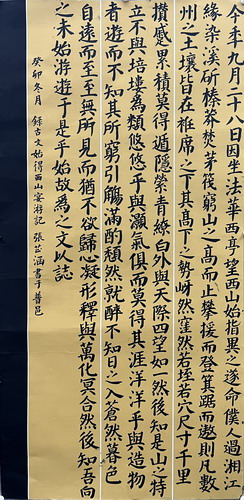 今年九月二十八日因坐法華西亭望西山始指異之遂命僕人過湘江
緣染溪斫榛莽焚茅茷窮山之高而止攀援而登箕踞而遨則凡數
州之土壤皆在衽席之下其高下之勢岈然窪然若垤若穴尺寸千里
攢蹙累積莫得遁隱縈青繚白外與天際四望如一然後知是山之特
立不與培塿為類悠悠乎與灝氣俱而莫得其涯洋洋乎與造物
者遊而不知其所窮引觴滿酌頹然就醉不知日之入蒼然暮色
自遠而至至無所見而猶不欲歸心凝形釋與萬化冥合然後知吾向
之未始游遊于是乎始故為之文以誌
癸卯冬月 錄古文始得西山宴游記 張芷涵書于普邑